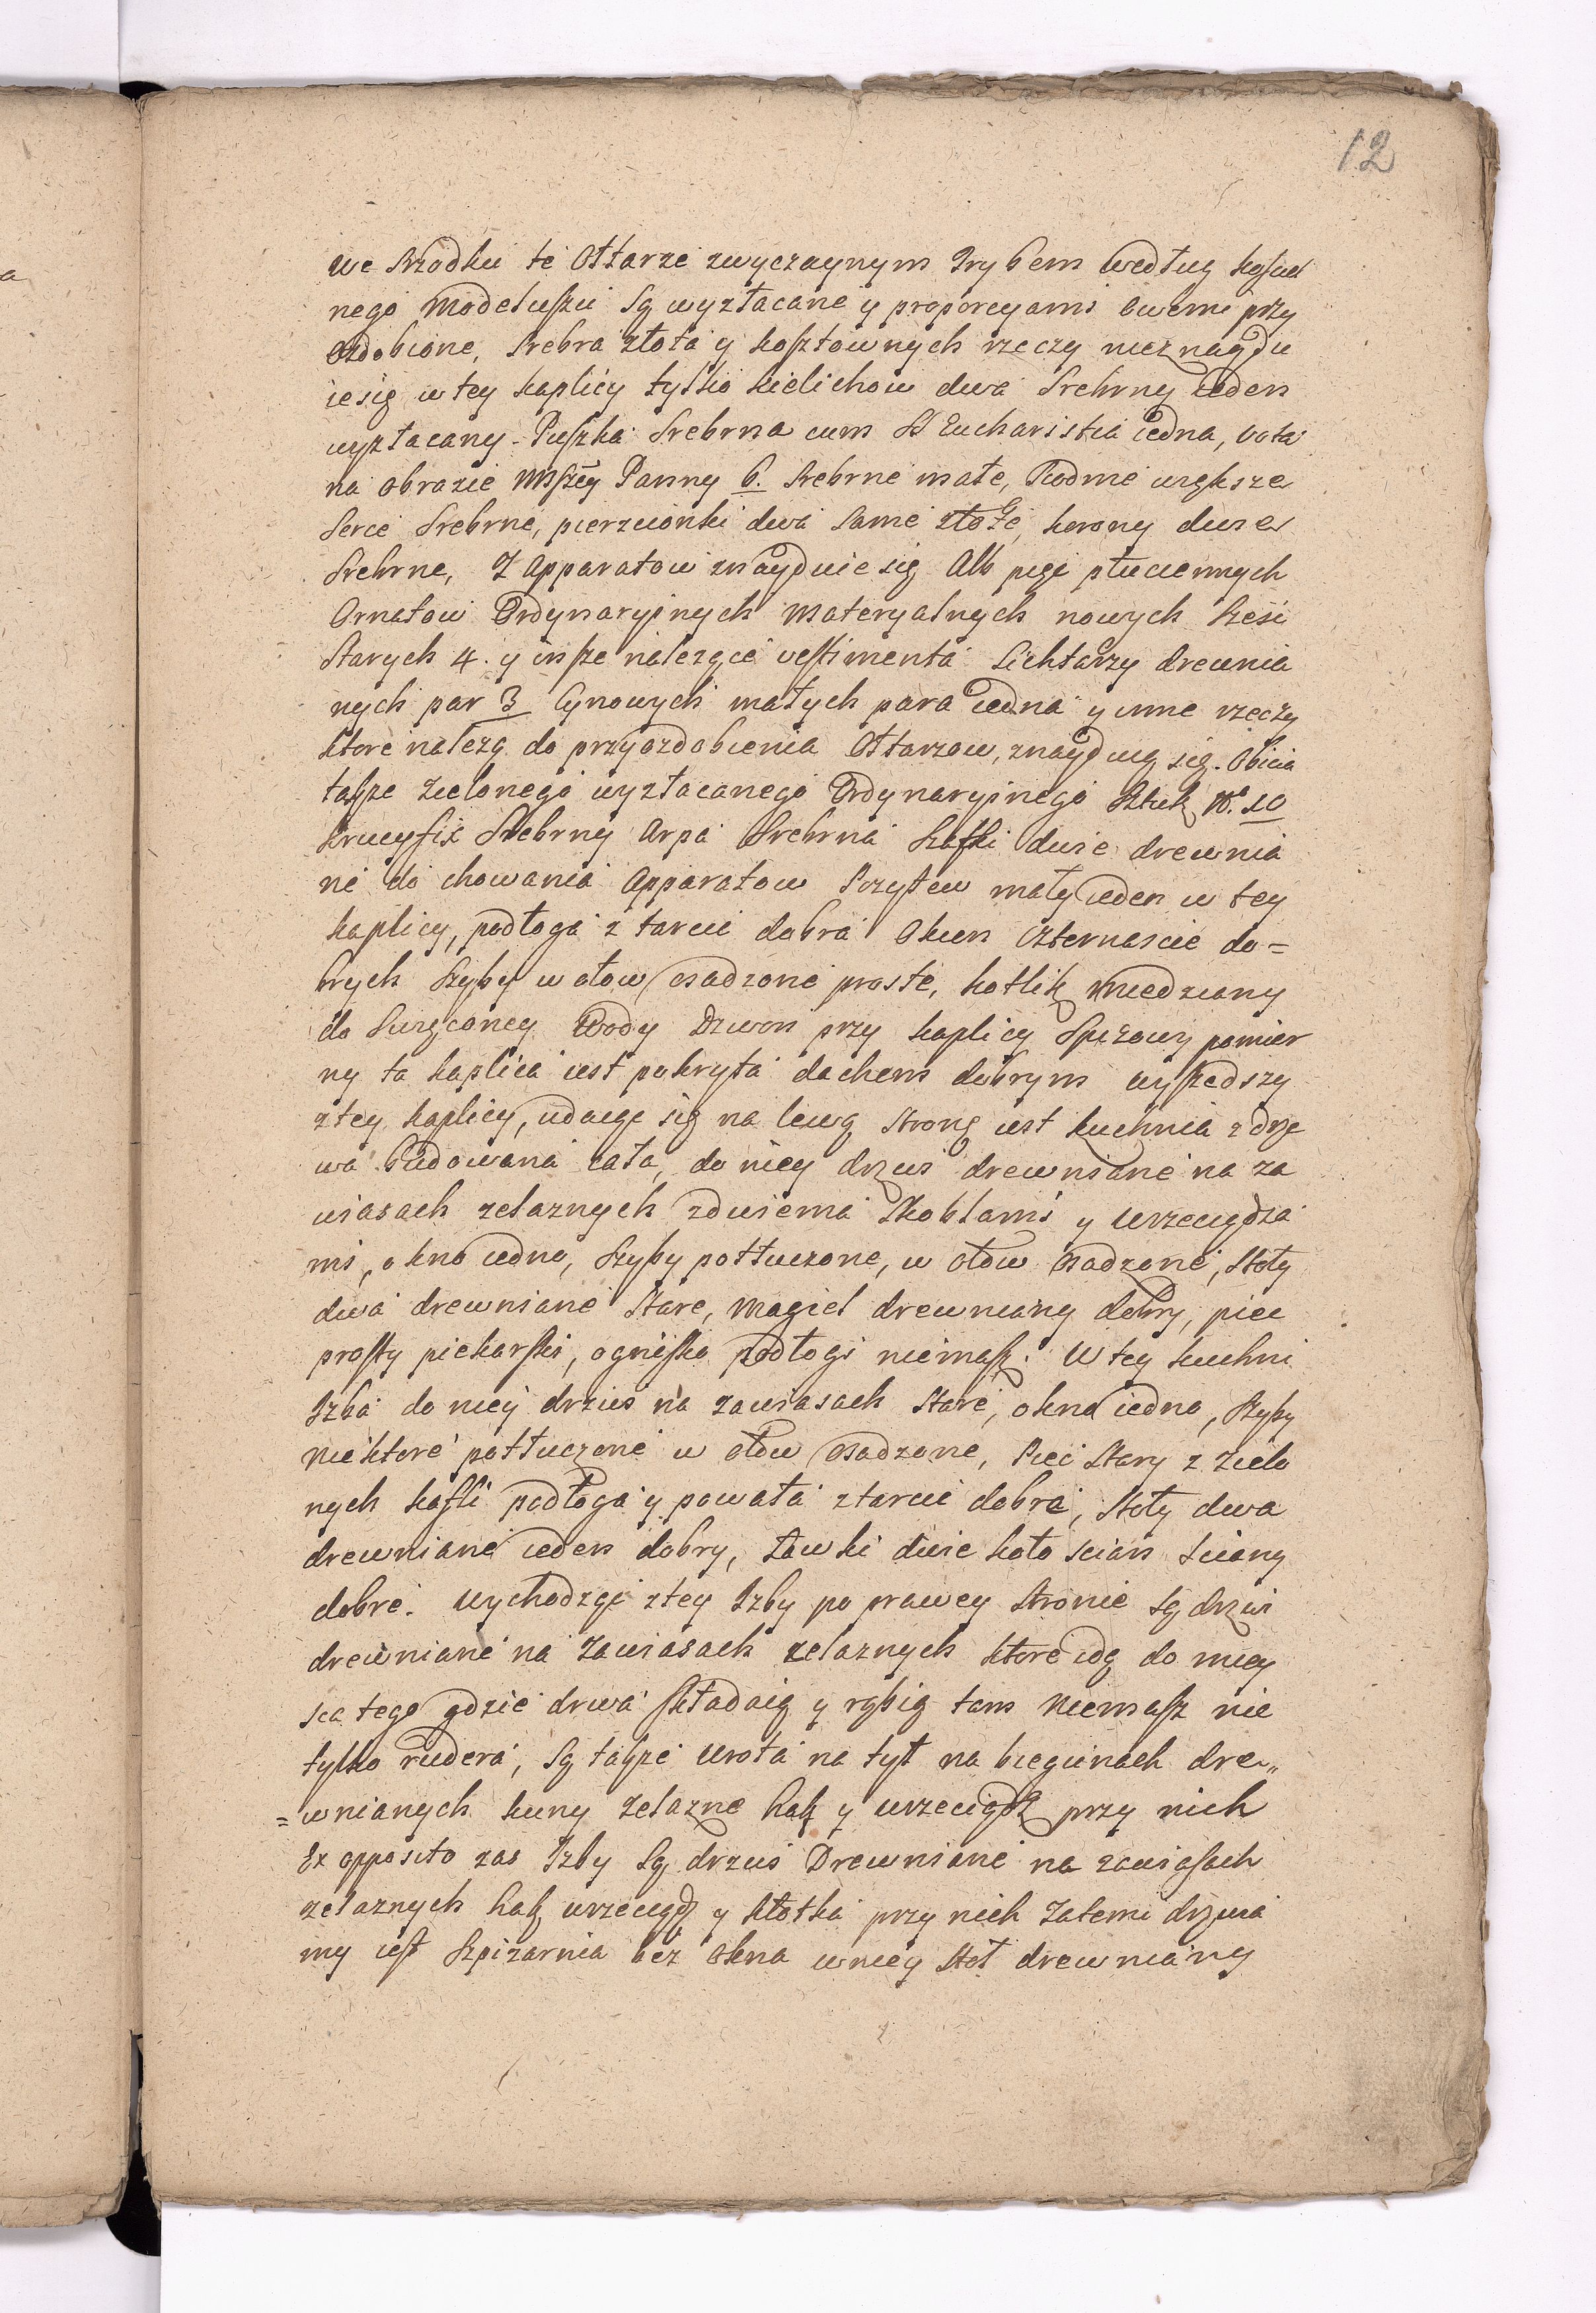 12
We srzodku te Ołtarze zwyczaynym trybem według
nego modeluszu są wyzłacane y proporcyami swemi przy
ozdobione, srebra złota y kosztownych rzeczy nieznaydu
iesię w tey kaplicy tylko kielichow dwa srebrny ieden
wyzłacany. Puszka srebrna cum SS Eucharistia iedna, vota
na obrazie Panny 6. srebrne małe, siodme większe
serce srebrne, pierzcionki dwa same złote, korony dwie
srebrne, Z apparatow znayduie się Alb pięć płuciennych
Ornatow Ordynaryinych materyalnych nowych sześć
starych 4. y insze należące vestimenta Lichtarzy drewnia
nych par 3 Cynowych małych para iedna y inne rzeczy
ktore należą do przyozdobienia Ołtarzow, znayduią się. Obicia
także zielonego wyzłacanego Ordynaryinego sztuk No. 10
krucyfix srebrny Arpa srebrna szafki dwie drewnia
ne do chowania Apparatow mały ieden w tey
kaplicy, podłoga z tarcic dobra Okien czternascie do=
brych szyby w ołow osadzone proste, kotlik miedziany
do święconey wody Dzwon przy kaplicy spiżowy pomier
ny ta kaplica iest pokryta dachem dobrym wyszedszy
z tey kaplicy, udaiąc się na lewą stronę iest kuchnia z drze
wa budowana cała, do niey drzwi drewniane na za
wiasach żelaznych z dwiema skoblami y wrzeciądza
mi, okno iedno, szyby potłuczone, w ołow osadzone, stoły
dwa drewniane stare, magiel drewniany dobry, piec
prosty piekarski, ognisko podłogi niemasz. W tey kuchni
Izba do niey drzwi na zawiasach stare, okno iedno, szyby
niektore potłuczone w ołow osadzone, Piec stary z zielo
nych kafli podłoga y powała z tarcic dobra, stoły dwa
drewniane ieden dobry, ławki dwie koło scian sciany
dobre. Wychodząc z tey Izby po prawey stronie są drzwi
drewniane na zawiasach żelaznych ktore idą do miey
sca tego gdzie drwa składaią y rąbią tam niemasz nic
tylko rudera, są także wrota na tył na biegunach dre„
=wnianych kuny żelazne hak y wrzeciądz przy nich
Ex opposito zas Izby są drzwi Drewniane na zawiasach
żelaznych hak wrzeciądz y kłotka przy nich Zatemi drzwia
my iest szpizarnia bez okna w niey stoł drewniany